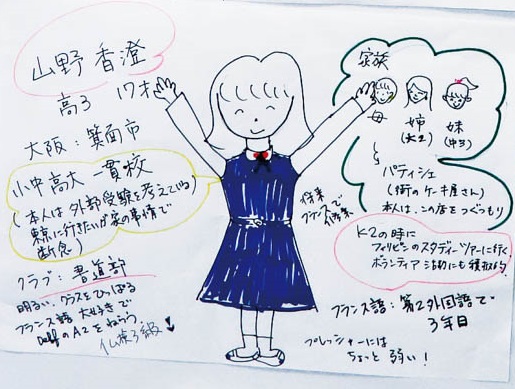 山野 香澄
高3 17才
大阪：箕面市
小中高大 一貫校
(本人は外部受験を考えている
東京に行きたいが家の事情で
断念)
クラブ：書道部
明るい、クラスをひっぱる
フランス語 大好きで
DelfのA2をねらう
仏検3級
将来
フランスで
修業
家族
母
姉
(大2)
妹
(中3)
パティシエ
(街のケーキ屋さん)
本人は、この店をつぐつもり
K2の時に
フィリピンのスタディーツアーに行く
ボランティア活動にも積極的！
フランス語：第2外国語で
3年目
プレッシャーには
ちょっと弱い！